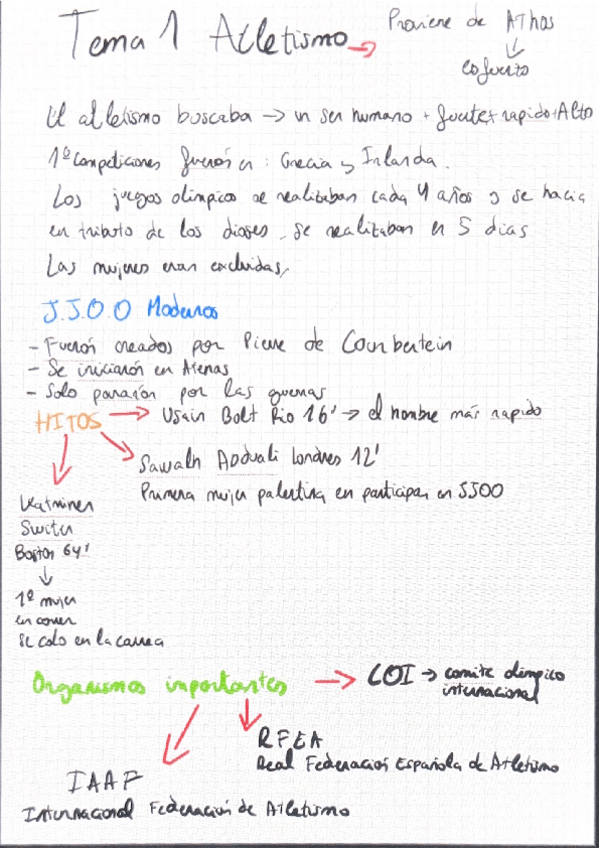 Tema 1 Atletismo → Proviene de Athos
↓
esfuerzo
El atletismo buscaba → un ser humano + fuerte + rapido + Alto
1º Competiciones fuerón en: Grecia y Irlanda.
Los juegos olimpico se realizaban cada 4 años y se hacia
en tributo de los dioses. Se realizaban en 5 dias
Las mujeres eran excluidas,
J.J.O.O Modernos
- Fuerón creados por Pierre de Counbertein
- Se iniciarón en Atenas
- Solo pararón por las guerras
HITOS → Usain Bolt Rio 16' → el hombre más rapido
Sawalh Abduali Londres 12'
Primera mujer palestina en participar en JJOO
Katrhiner
Switer
Boston 64'
↓
1º mujer
en correr
Se colo en la carrea
Organismos importantes → COI → comite olimpico
internacional
RFEA
Real Federación Española de Atletismo
IAAF
Internacional Federación de Atletismo